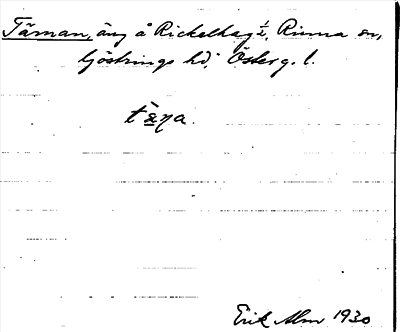 Tärnan, äng å Rickelhag 1/2, Rinna sn,
Göstrings hd, Österg. l.
tä̱ɳa.
Erik Alm 1930